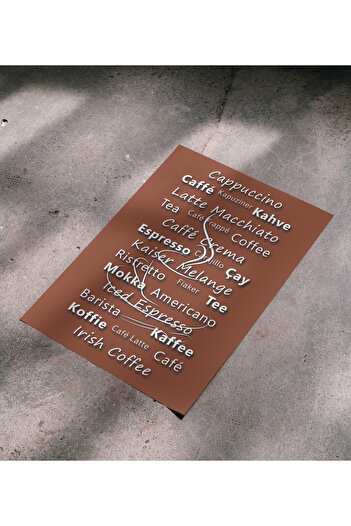 Cappuccino
Caffé Kapuziner
Latte Macchiato
Tea Café frappé Kahve
Caffé Crema Coffee
Espresso
Kaiser Melange Çay
Ristretto Fiaker
Mokka Americano Tee
Iced Espresso
Barista Kaffee
Koffie Café Latte Café
Irish Coffee